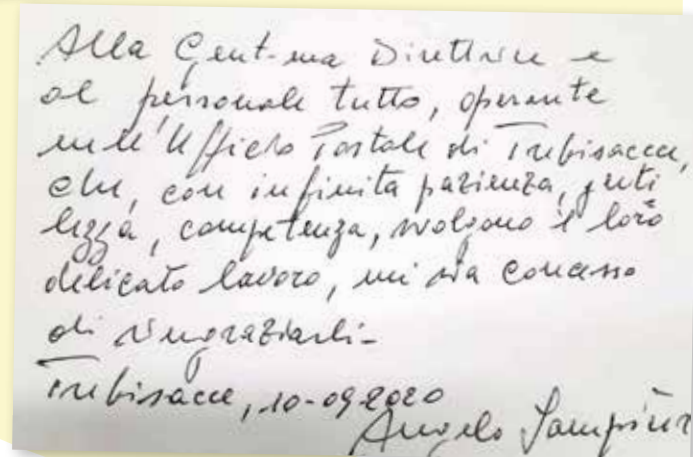 Alla Gent-ma Direttrice e
al personale tutto, operante
nell'Ufficio Postale di Trebisacce,
che, con infinita pazienza, genti
lezza, competenza, svolgono il loro
delicato lavoro, mi sia concesso
di ringraziarli-
Trebisacce, 10-09-2020
Angelo